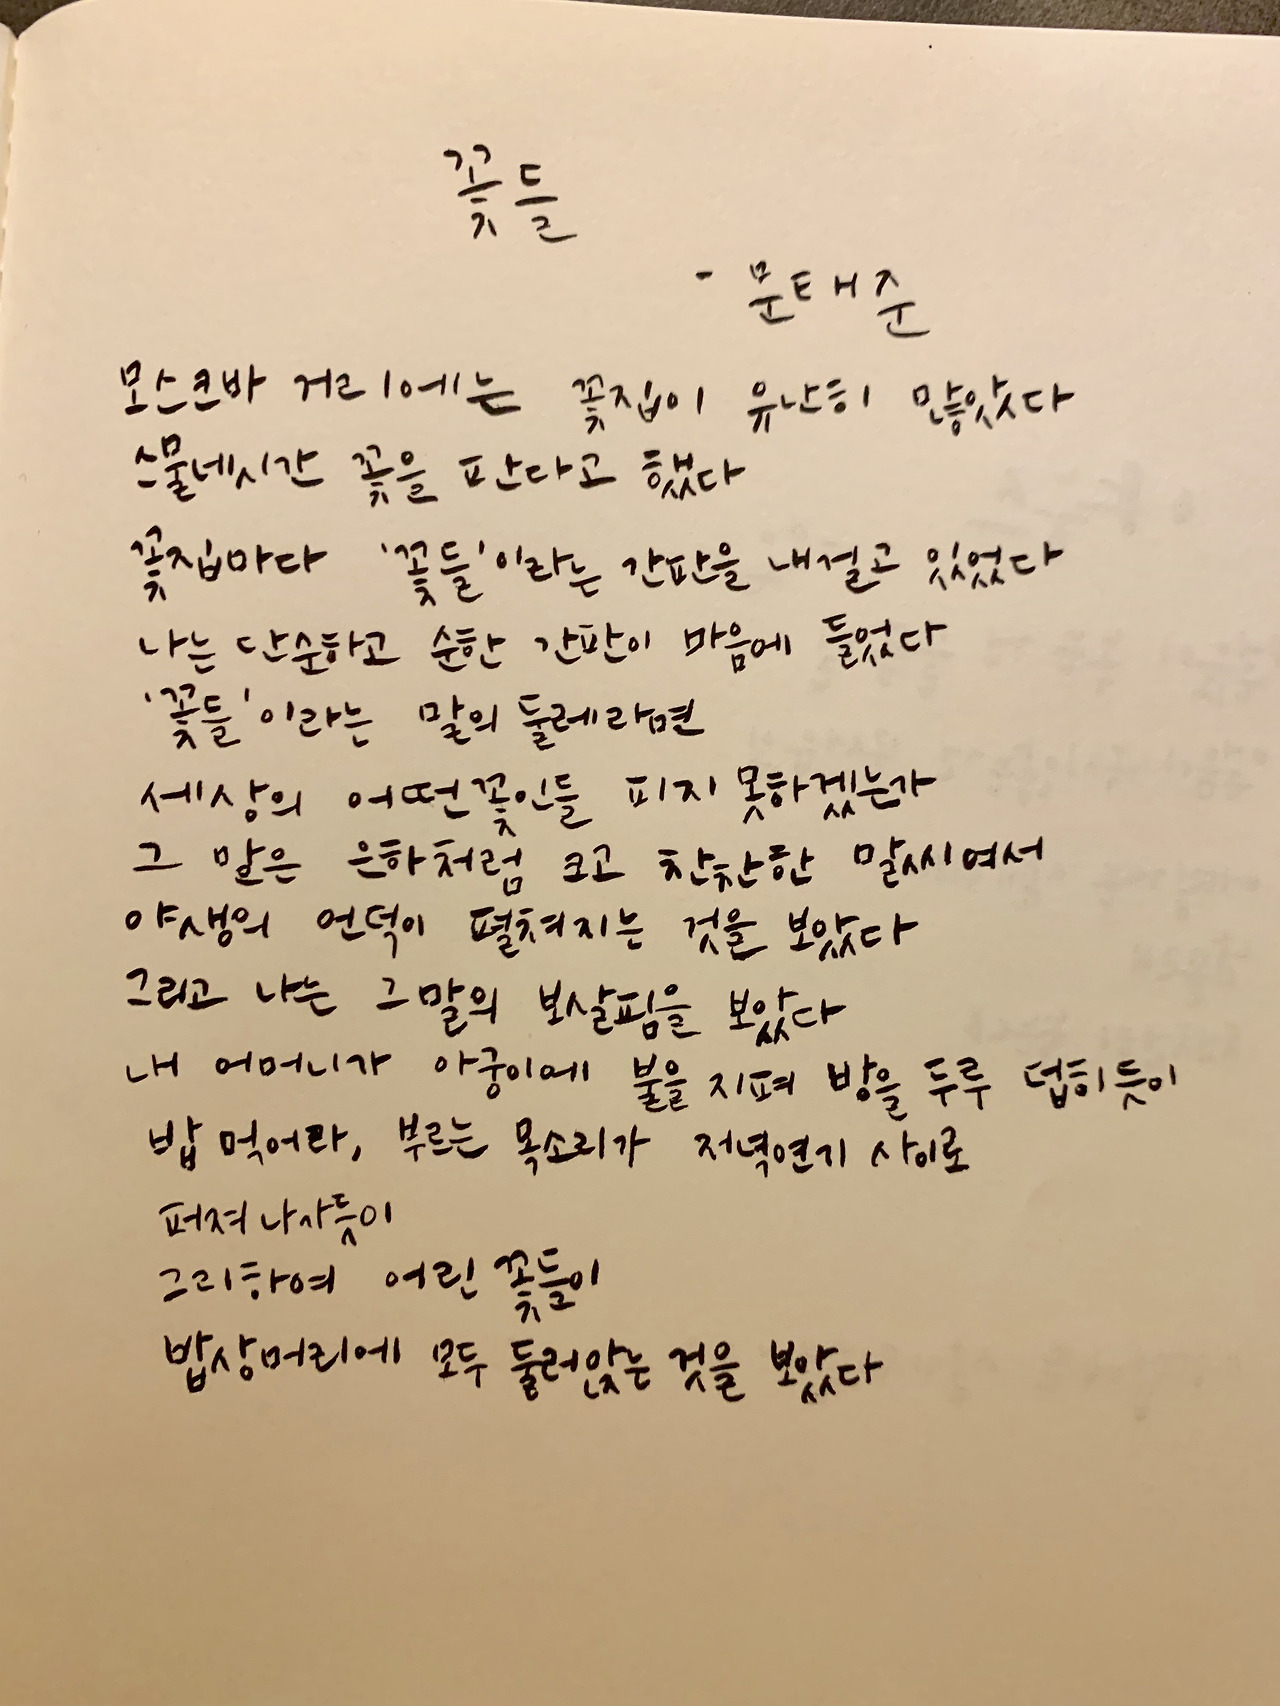 꽃들
- 문태준
모스크바 거리에는 꽃집이 유난히 많았다
스물네시간 꽃을 판다고 했다
꽃집마다 '꽃들'이라는 간판을 내걸고 있었다
나는 단순하고 순한 간판이 마음에 들었다
'꽃들'이라는 말의 둘레라면
세상의 어떤꽃인들 피지 못하겠는가
그 말은 은하처럼 크고 찬찬한 말씨여서
야생의 언덕이 펼쳐지는 것을 보았다
그리고 나는 그말의 보살핌을 보았다
내 어머니가 아궁이에 불을 지펴 방을 두루 덥히듯이
밥 먹어라, 부르는 목소리가 저녁연기 사이로
퍼져나가듯이
그리하여 어린 꽃들이
밥상머리에 모두 둘러앉는 것을 보았다